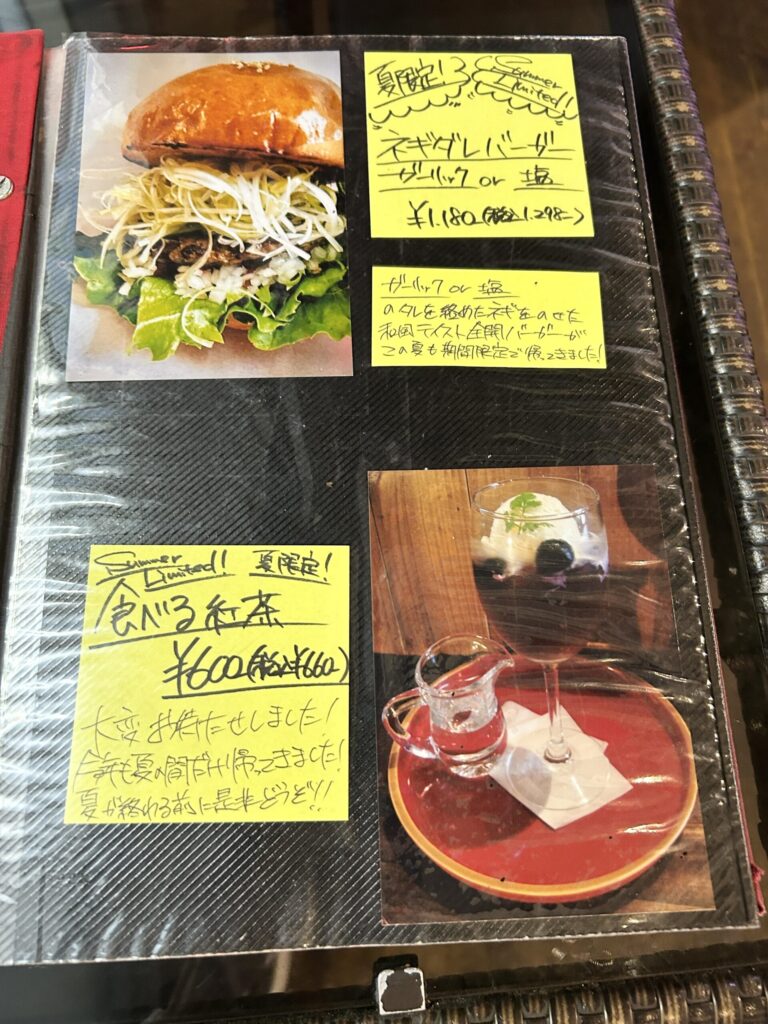 夏限定! Summer Limited!!
ネギダレバーガー
ガーリック or 塩
¥1.180-(税込1.298-)
ガーリック or 塩
のタレを絡めたネギをのせた
和風テイスト全開バーガーが
この夏も期間限定で帰ってきました!
Summer Limited! 夏限定!
食べる紅茶
¥600-(税込¥660-)
大変お待たせしました!
今年も夏の間だけ帰ってきました!
夏が終わる前に是非どうぞ!!